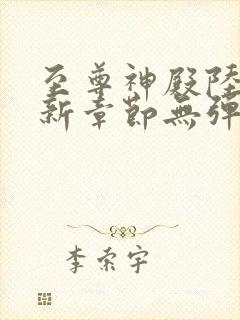 至尊神殿陸
新章節無彈
李索宇